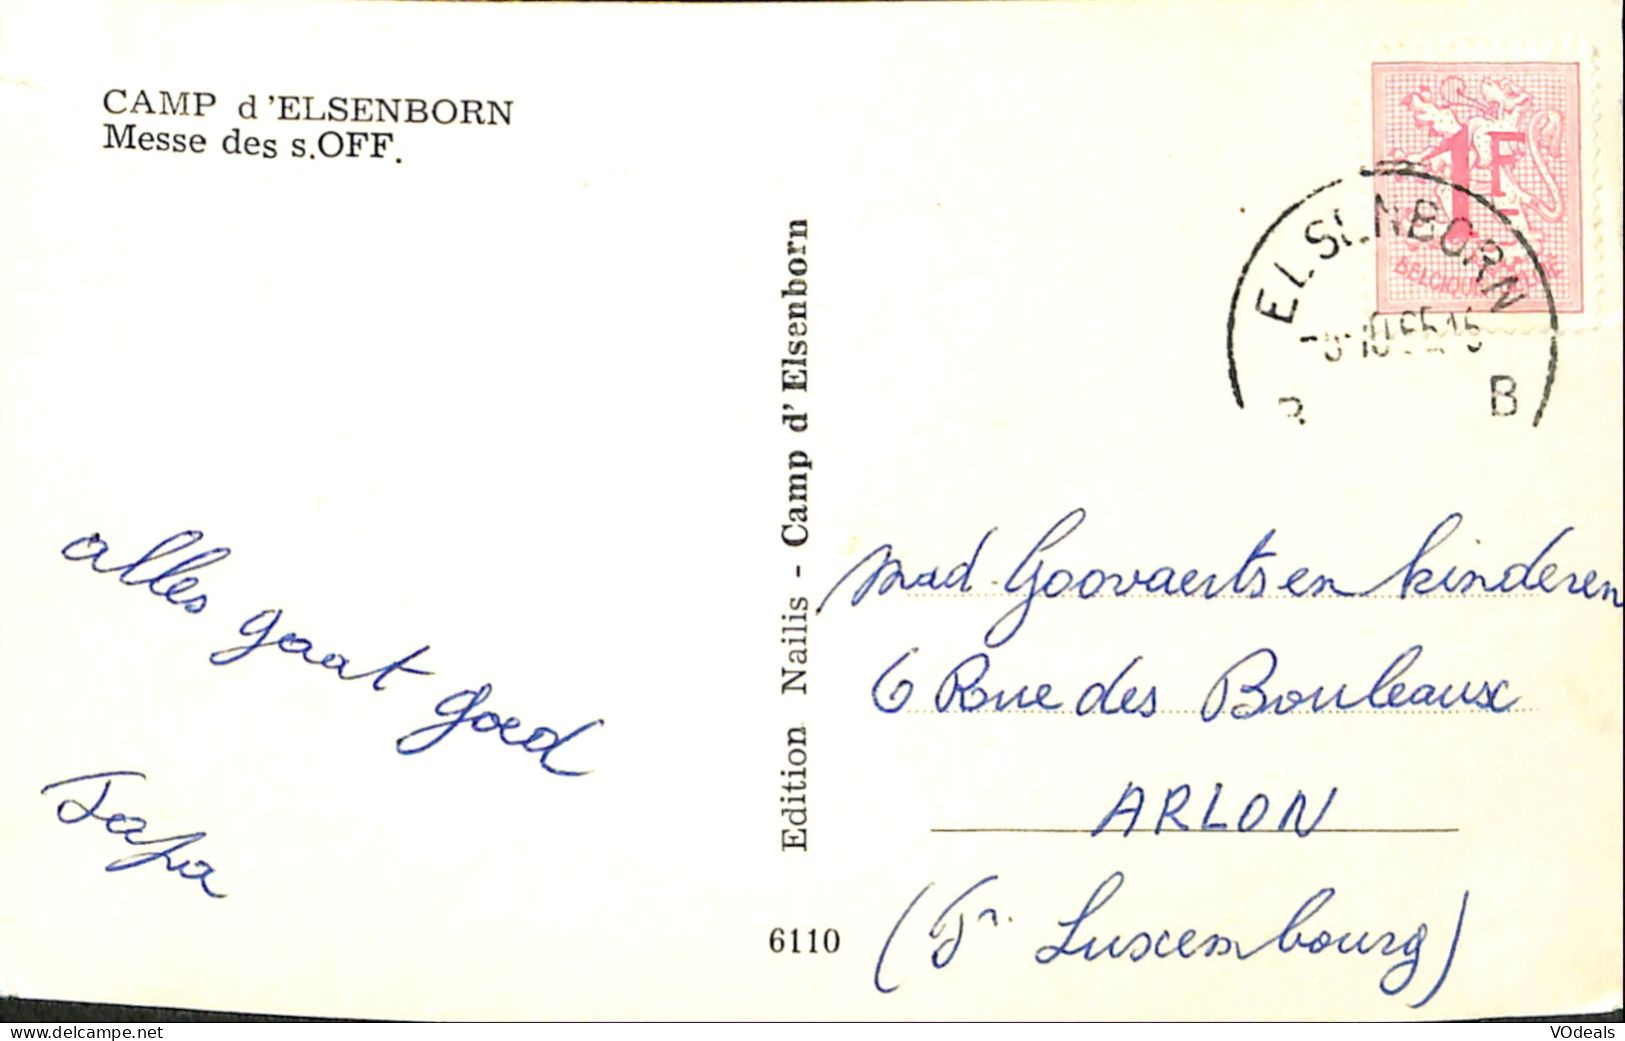 CAMP d'ELSENBORN
Messe des s.OFF.
1F
BELGIQUE
ELSENBORN
B
Edition Nailis - Camp d'Elsenborn
6110
alles gaat goed
Papa
mad. Goovaerts en kinderen
6 Rue des Bouleaux
ARLON
(Pr. Luxembourg)
www.delcampe.net
VOdeals